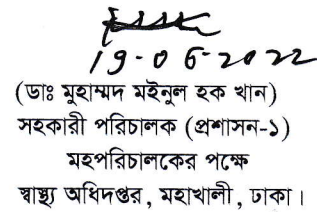 19-06-2022
(ডাঃ মুহাম্মদ মইনুল হক খান)
সহকারী পরিচালক (প্রশাসন-১)
মহপরিচালকের পক্ষে
স্বাস্থ্য অধিদপ্তর, মহাখালী, ঢাকা।